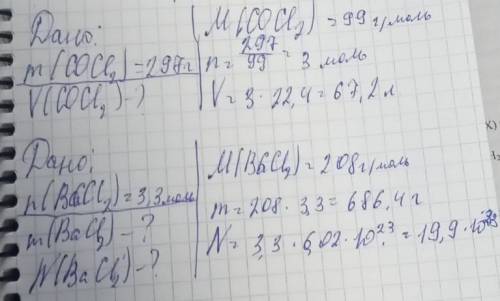 Дано:
m(COCl₂)=297г
V(COCl₂)-?
M(COCl₂)=99 г/моль
n=297/99=3 моль
V=3·22,4=67,2 л
Дано:
n(BaCl₂)=3,3 моль
m(BaCl₂)-?
N(BaCl₂)-?
M(BaCl₂)=208 г/моль
m=208·3,3=686,4 г
N=3,3·6,02·10²³=19,9·10²³